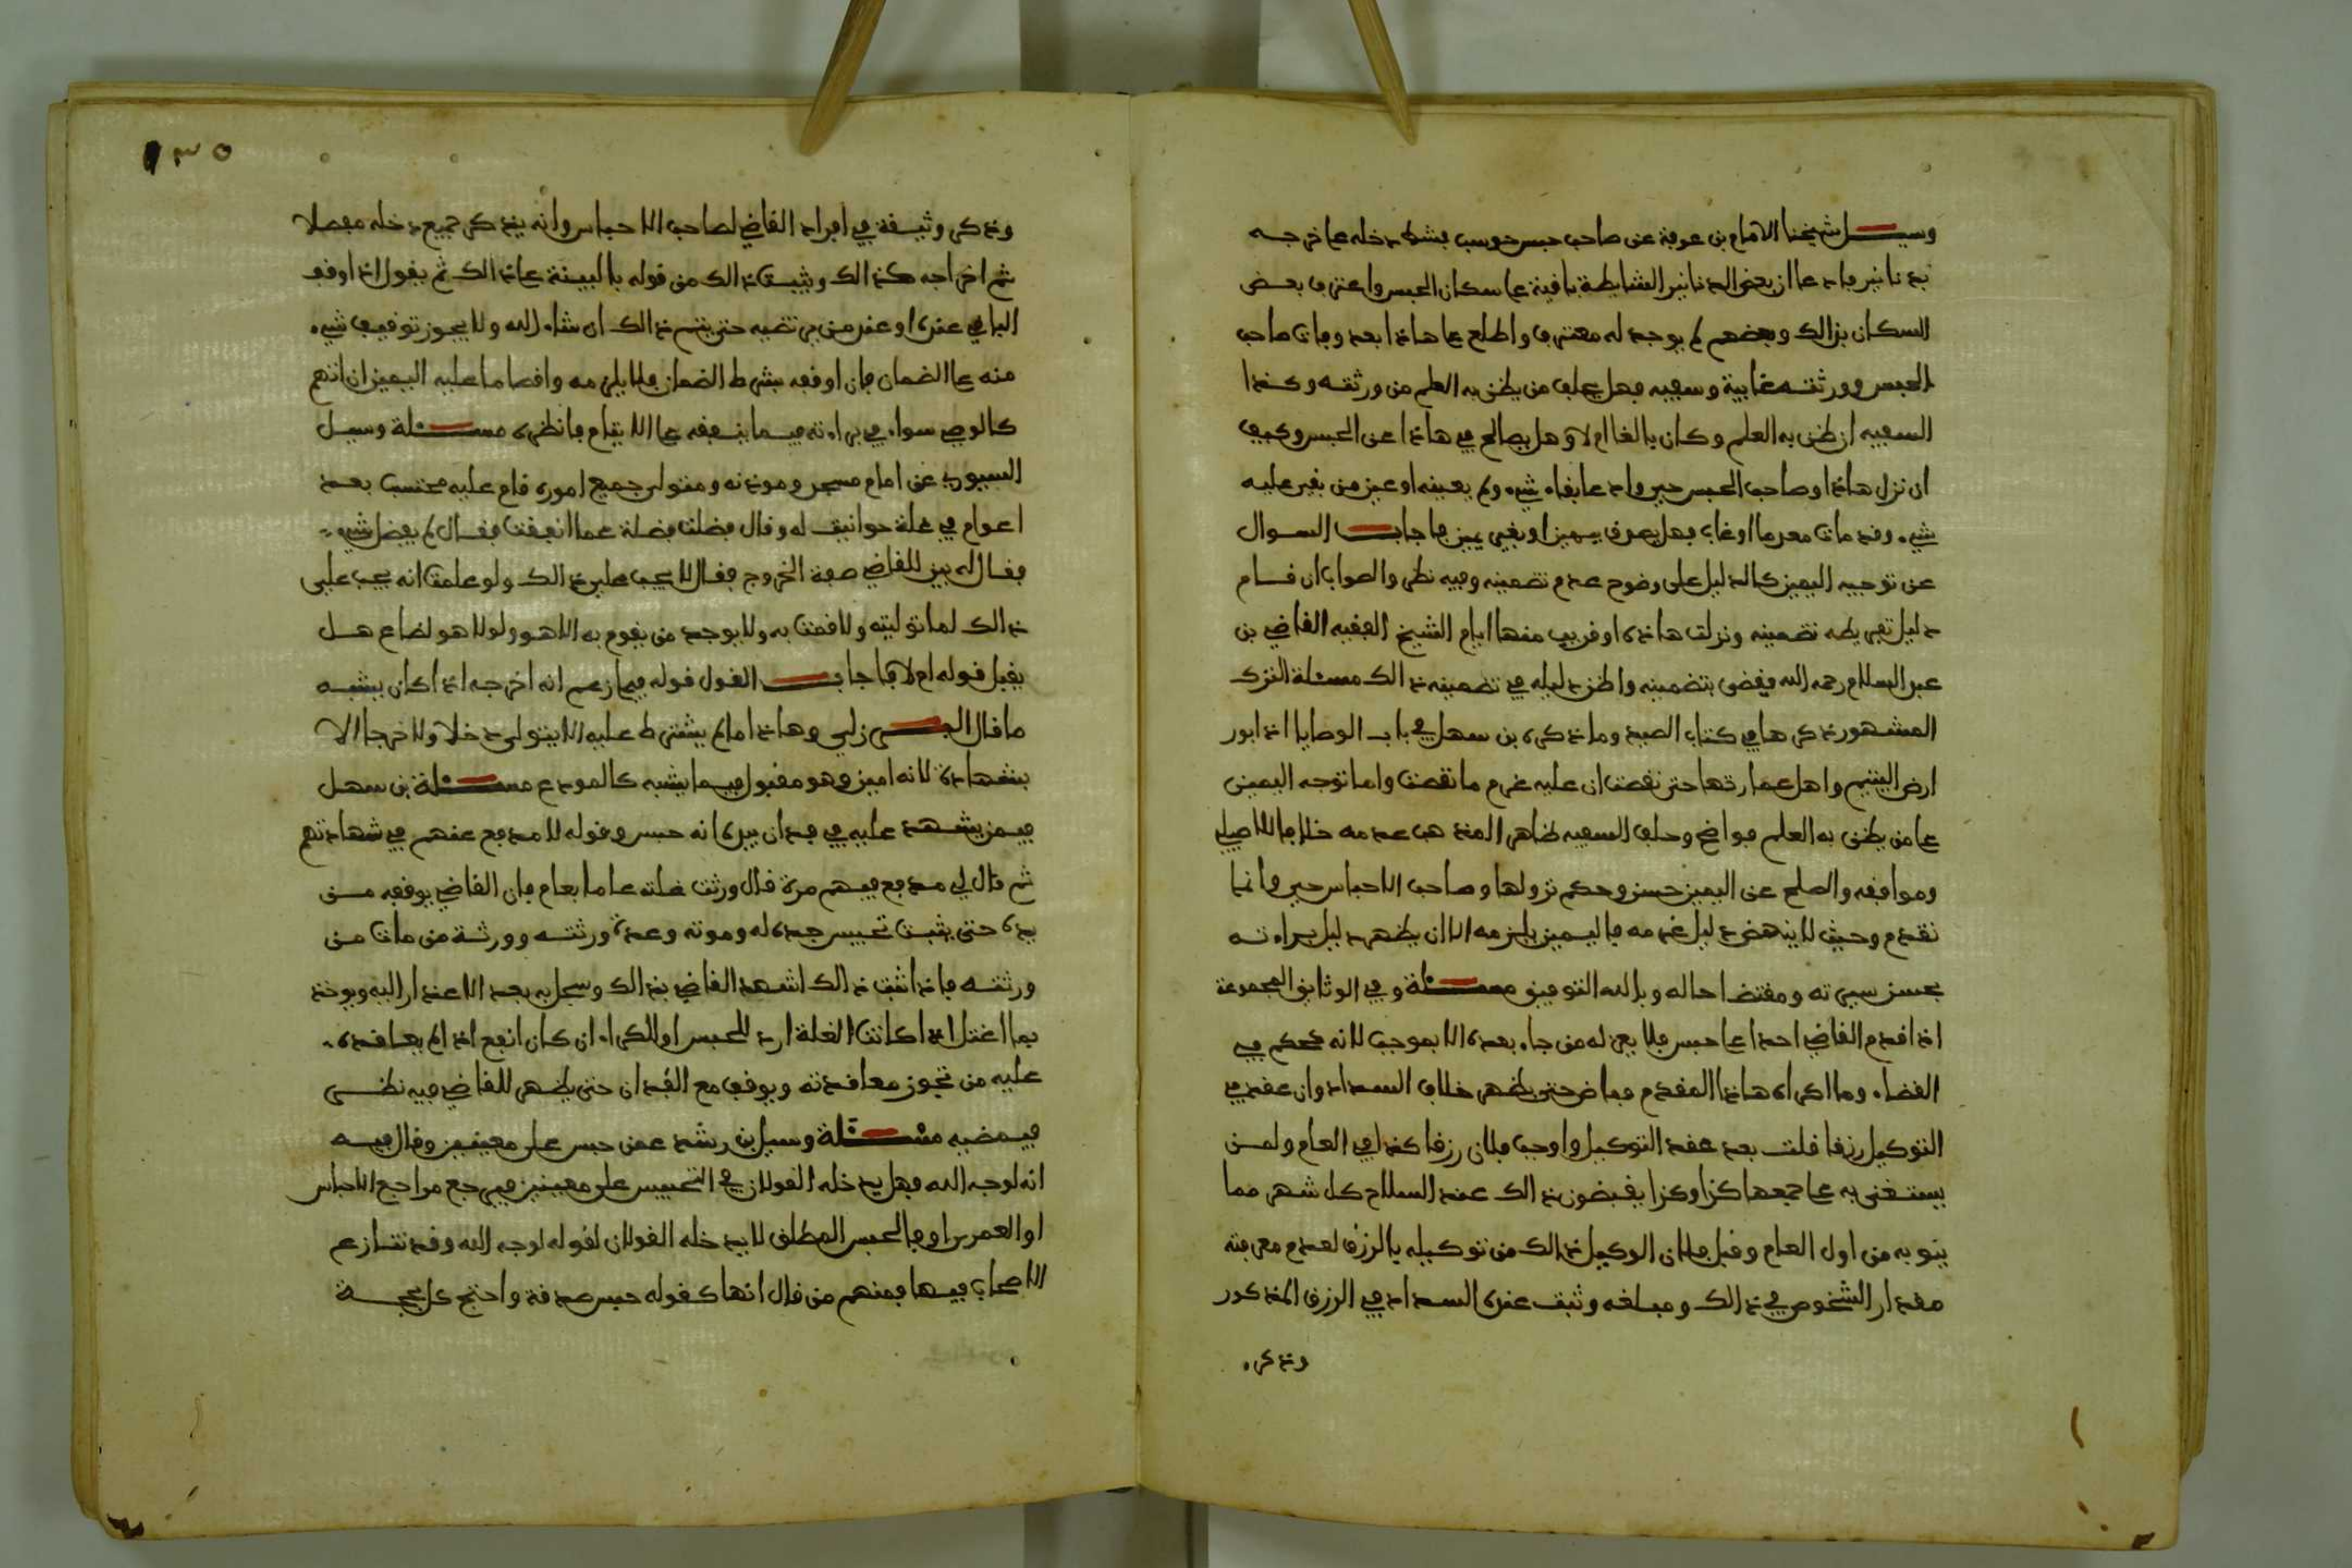 وسيل شيخنا الامام بن عرفة عن صاحب حبس حوسب فشط دخله على خرجه
بدنانير فادعا ان بعض الدنانير الشايطة باقية على سكان الحبس واعترف بعض
السكان بذالك وبعضهم لم يوجد له معترف واطلع على هاذا بعد وفات صاحب
الحبس وورثته غايبة وسفيه فهل يحلف من يظن به العلم من ورثته وكذا
السفيه ان ظن به العلم وكان بالغا ام لا وهل يصالح في هاذا عن الحبس وكيف
ان نزل هاذا وصاحب الحبس حي وادعا بقاء شيء ولم يعينه او عين من بقي عليه
شيء وقد مات معدما او غاب فهل يصدق بيمين او بغير يمين فاجاب السوال
عن توجيه اليمين كالدليل على وضوح عدم تضمينه وفيه نظر والصواب ان قام
دليل تفريطه تضمينه ونزلت هاذه او قريب منها ايام الشيخ الفقيه القاضي بن
عبد السلام رحمه الله فقضى بتضمينه واظن دليله في تضمينه ذالك مسئلة الترك
المشهور ذكرها في كتاب الصيد وما ذكره بن سهل في باب الوصايا اذا بور
ارض اليتيم واهمل عمارتها حتى نقصت ان عليه غرم ما نقصت واما توجه اليمين
على من يظن به العلم فواضح وحلف السفيه ظاهر المذهب عدمه خلافا للاصيلي
وموافقه والصلح عن اليمين حسن وحكم نزولها وصاحب الاحباس حي فانما
تقدم وحيث لا ينهض دليل غرمه فاليمين يلزمه الا ان يظهر دليل براءته
بحسن سيرته ومقتضا حاله وبالله التوفيق مسئلة وفي الوثايق المجموعة
اذا قدم القاضي احدا على حبس فلا يعزله من جاء بعده الا بموجب لانه كحكم في
القضاء وما اكراه هاذا المقدم فماض حتى يظهر خلاف السداد وان عقد في
التوكيل رزقا قلت بعد عقد التوكيل واوجب فلان رزقا كذا في العام ولمن
يستغنى به على جمعها كذا وكذا يقبضون ذالك عند انسلاخ كل شهر مما
ينوبه من اول العام وقبل فلان الوكيل ذالك من توكيله بالرزق لعدم معرفته
مقدار الشخوص في ذالك ومبلغه وثبت عنده السداد في الرزق المذكور
وذكر
١٣٥
وذكر وثيقة في افراد القاضي لصاحب الاحباس وانه يذكر جميع دخله مفصلا
ثم اخراجه كذالك ويثبت ذالك من قوله بالبينة على ذالك ثم يقول اذا وقف
الباقي عنده او عند من يرتضيه حتى يتم ذالك ان شاء الله ولا يجوز توقيف شيء
منه على الضمان فان اوقفه بشرط الضمان فلا يلزمه واقصا ما عليه اليمين ان اتهم
كالوصي سواء في براءته فيما ينفقه على الايتام فانظره مسئلة وسيل
السيوري عن امام مسجد وموذنه ومتولي جميع اموره قام عليه محتسب بعد
اعوام في غلة حوانيت له وقال فضلت فضلة عما انفقت فقال لم يفضل شيء
فقال له بين للقاضي صفة الخروج فقال لا يجب علي ذالك ولو علمت انه يجب علي
ذالك لما توليته ولا قمت به ولا يوجد من يقوم به الا هو ولولا هو لضاع هل
يقبل قوله ام لا فاجاب القول قوله فيما زعم انه اخرجه اذا كان يشبه
ما قال البرزلي وهاذا ما لم يشترط عليه الا يتولى دخلا ولا خرجا الا
بشهادة لانه امين وهو مقبول فيما يشبه كالمودع مسئلة بن سهل
فيمن يشهد عليه في فدان بيده انه حبس وقوله لا مدفع عندهم في شهادتهم
ثم قال لي مدفع فيهم مرة قال ورثت غلته عاما بعام فان القاضي يوقفه من
يده حتى يثبت تحبيس جده له وموته وعدة ورثته وورثة من مات من
ورثته فاذا ثبت ذالك اشهد القاضي بذالك وسجل به بعد الاعذار اليه ويوخذ
بما اغتل اذا كانت الغلة ارد للحبس او الكراء ان كان انفع اذا لم يعاقده
عليه من تجوز معاقدته ويوقف مع الفدان حتى يظهر للقاضي فيه نظر
فيمضيه مسئلة وسيل بن رشد عمن حبس على معينين وقال فيه
انه لوجه الله فهل يدخله القولان في التحبيس على معينين فيرجع مراجع الاحباس
او العمرى او فالحبس المطلق لا يدخله القولان لقوله لوجه الله وقد تنازع
الاصحاب فيها فمنهم من قال انها كقوله حبس صدقة واحتج كل بحجة